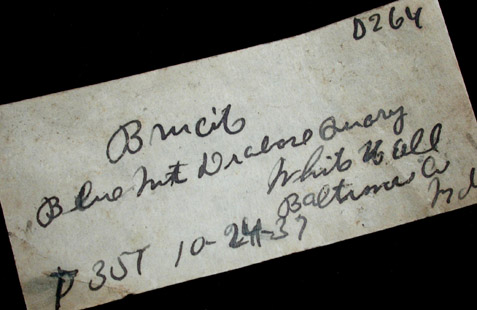 D264
Brucit
Blue Mt Quarry
White Hall
Baltimore Co
Md
P 35T 10-24-37